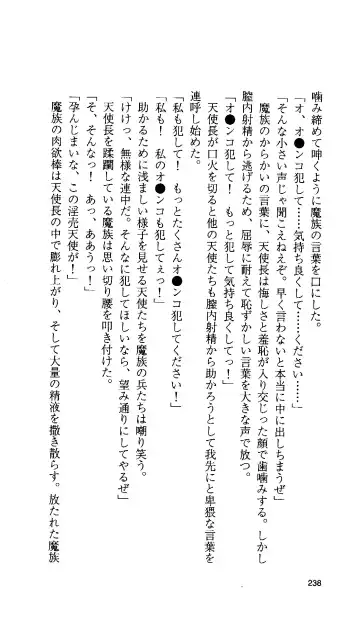 噛み締めて呻くように魔族の言葉を口にした。
「オ、オ●ンコ犯して……気持ち良くして……ください……」
「そんな小さい声じゃ聞こえねえぞ。早く言わないと本当に中に出しちまうぜ」
魔族のからかいの言葉に、天使長は悔しさと羞恥が入り交じった顔で歯噛みする。しかし
膣内射精から逃げるため、屈辱に耐えて恥ずかしい言葉を大きな声で放つ。
「オ●ンコ犯して！　もっと犯して気持ち良くしてっ！」
天使長が口火を切ると他の天使たちも膣内射精から助かろうとして我先にと卑猥な言葉を
連呼し始めた。
「私も犯して！　もっとたくさんオ●ンコ犯してください！」
「私も！　私のオ●ンコも犯してぇっ！」
助かるために浅ましい様子を見せる天使たちを魔族の兵たちは嘲り笑う。
「けけっ、無様な連中だ。そんなに犯してほしいなら、望み通りにしてやるぜ」
天使長を蹂躙している魔族は思い切り腰を叩き付けた。
「そ、そんなっ！　あっ、ああうっ！」
「孕んじまいな、この淫売天使が！」
魔族の肉欲棒は天使長の中で膨れ上がり、そして大量の精液を撒き散らす。放たれた魔族
238